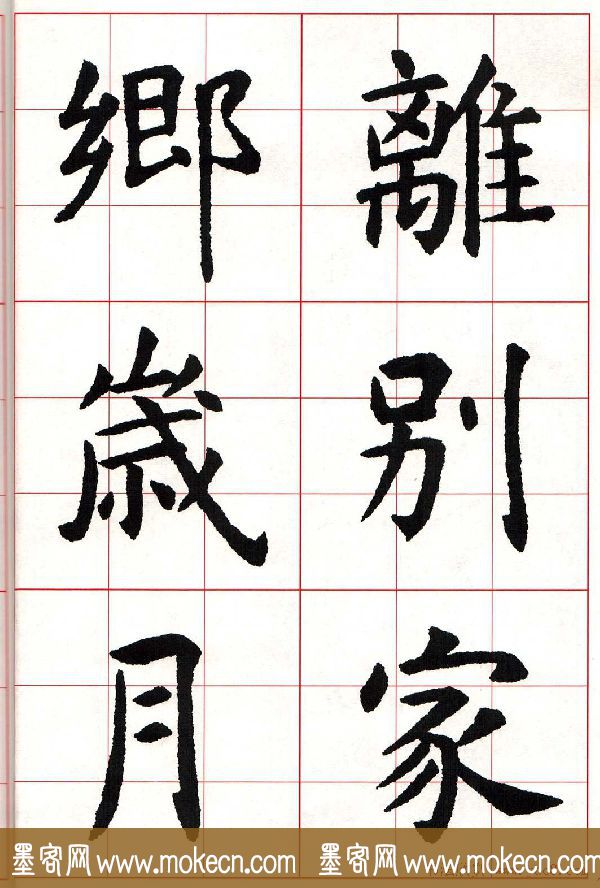 離別家
鄉歲月
墨客网 www.mokecn.com 墨客网 www.mokecn.com